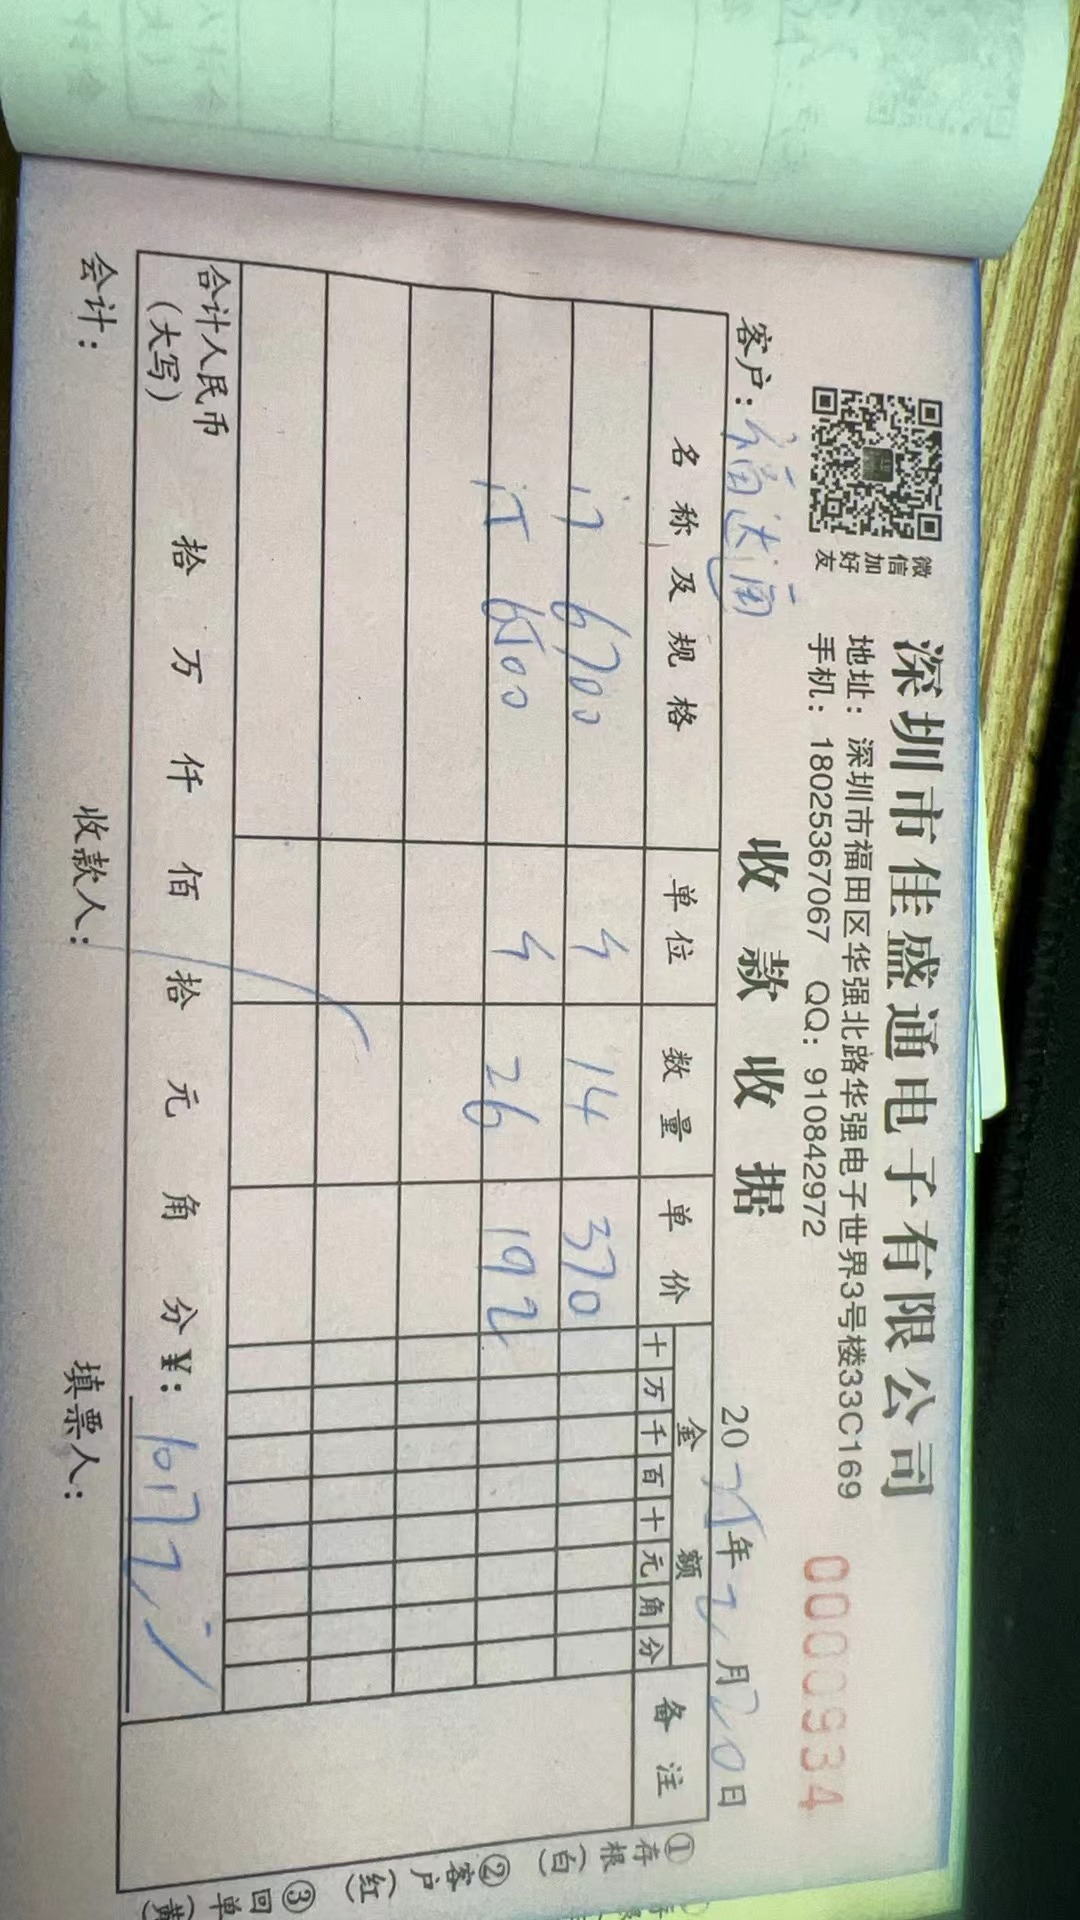 微信加好友
深圳市佳盛通电子有限公司
地址：深圳市福田区华强北路华强电子世界3号楼33C169
手机：18025367067 QQ：910842972
收款收据
0000934
客户：福达南
20 25年2月20日
名称及规格 单位 数量 单价 金额 备注
十万千百十元角分
i7 6700 4 14 370
i5 6500 4 26 192
合计人民币（大写） 拾 万 仟 佰 拾 元 角 分 ￥：10172
会计： 收款人： 填票人：
①存根（白） ②客户（红） ③回单（黄